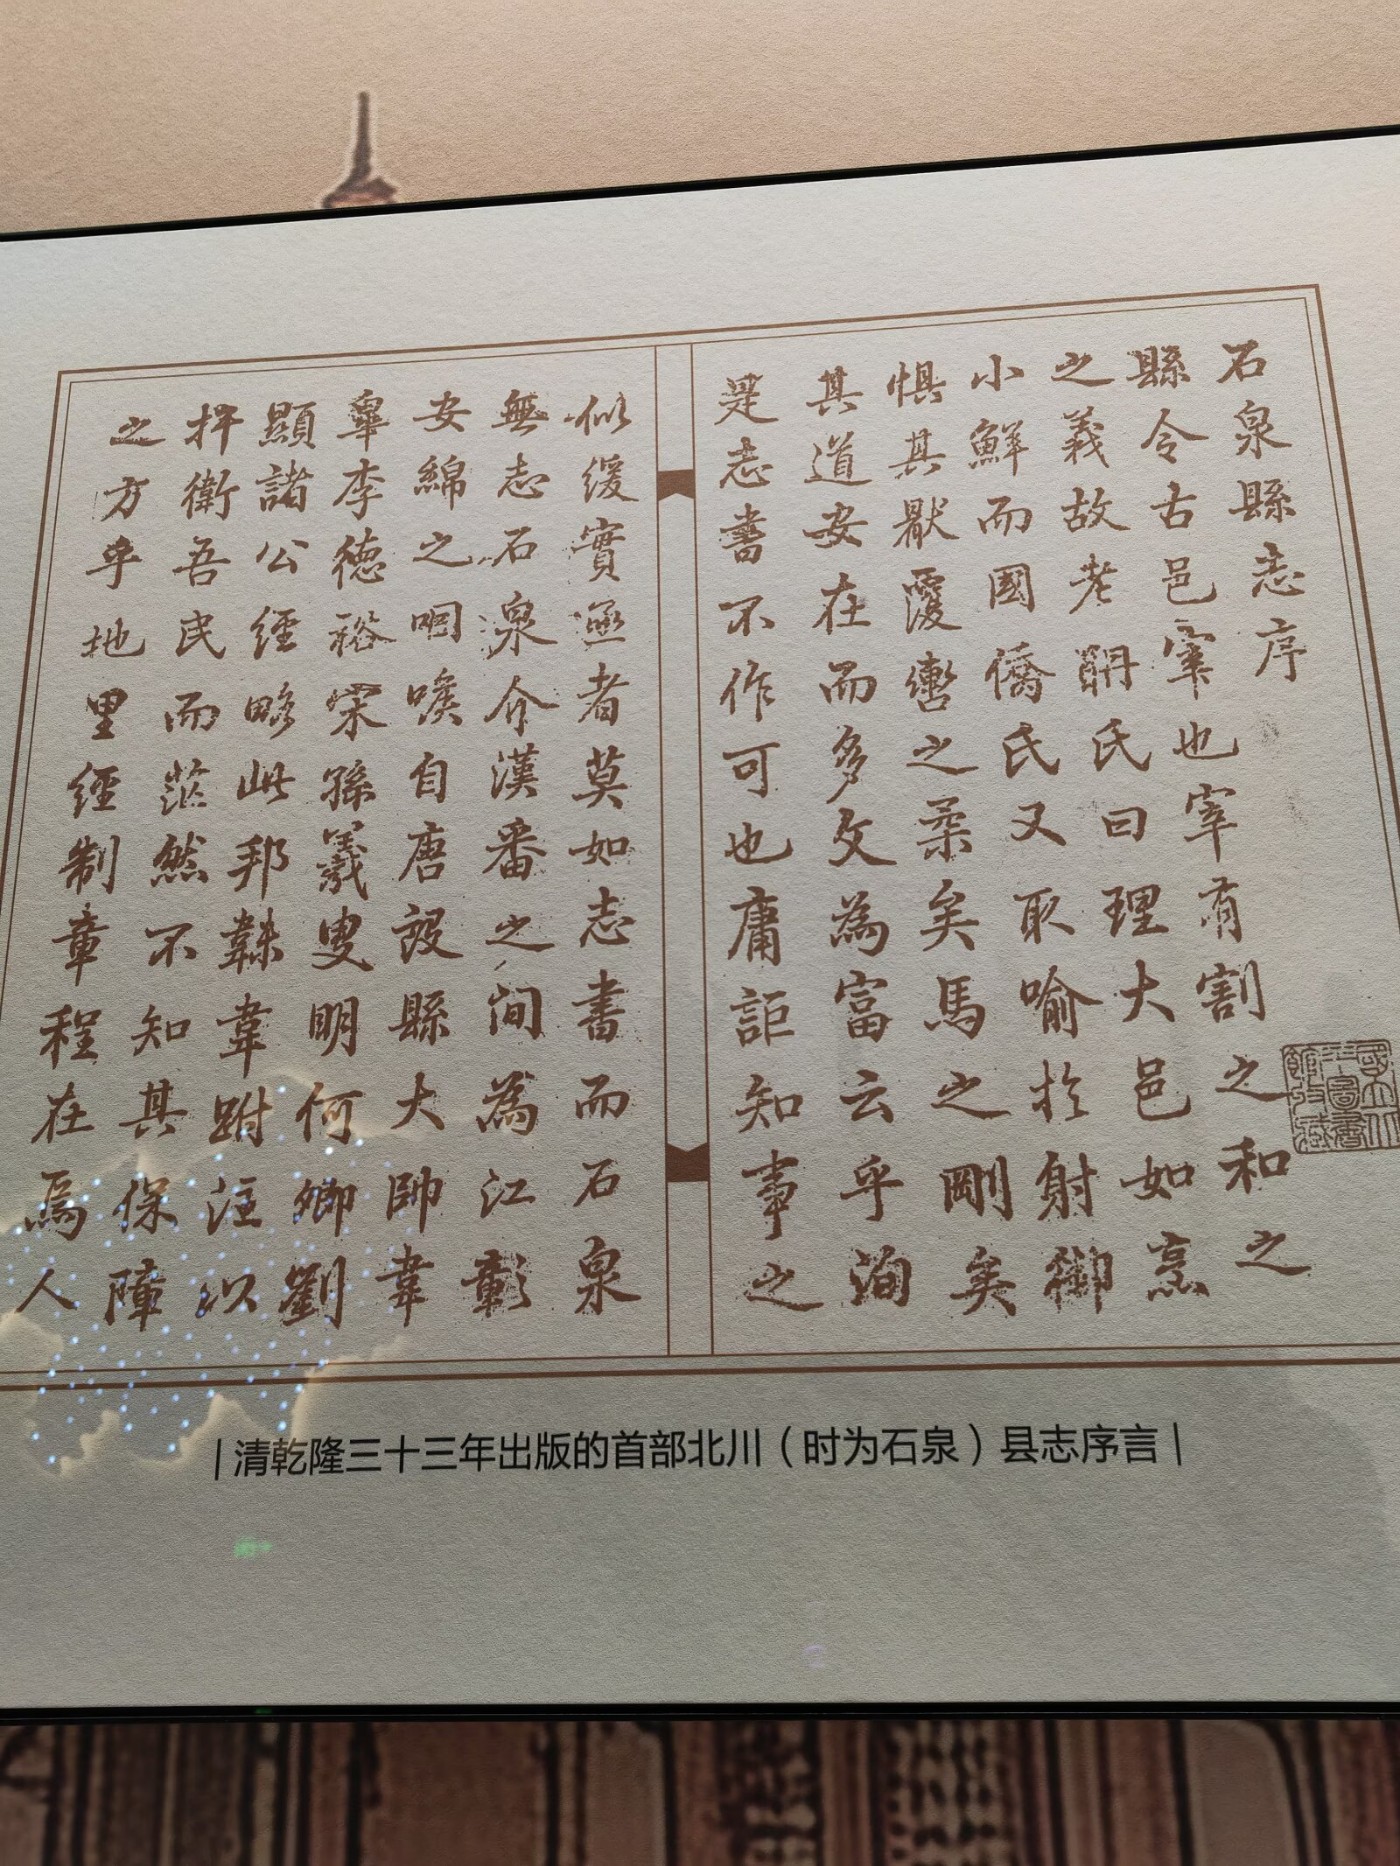 石泉縣志序
縣令古邑宰也宰有割之和之
之義故老聃氏曰理大邑如烹
小鮮而國僑氏又取喻於射御
惧其厭覆轡之柔矣馬之剛矣
其道安在而多文為富云乎洵
是志書不作可也庸詎知事之
似缓實亟者莫如志書而石泉
無志石泉介漢番之间為江彰
安綿之咽喉自唐設縣大帥韋
皋李德裕宋孫羲叟明何卿劉
顯諸公經略此邦韎韋跗注以
捍衛吾民而茫然不知其保障
之方乎地里經制章程在焉人
清乾隆三十三年出版的首部北川（时为石泉）县志序言